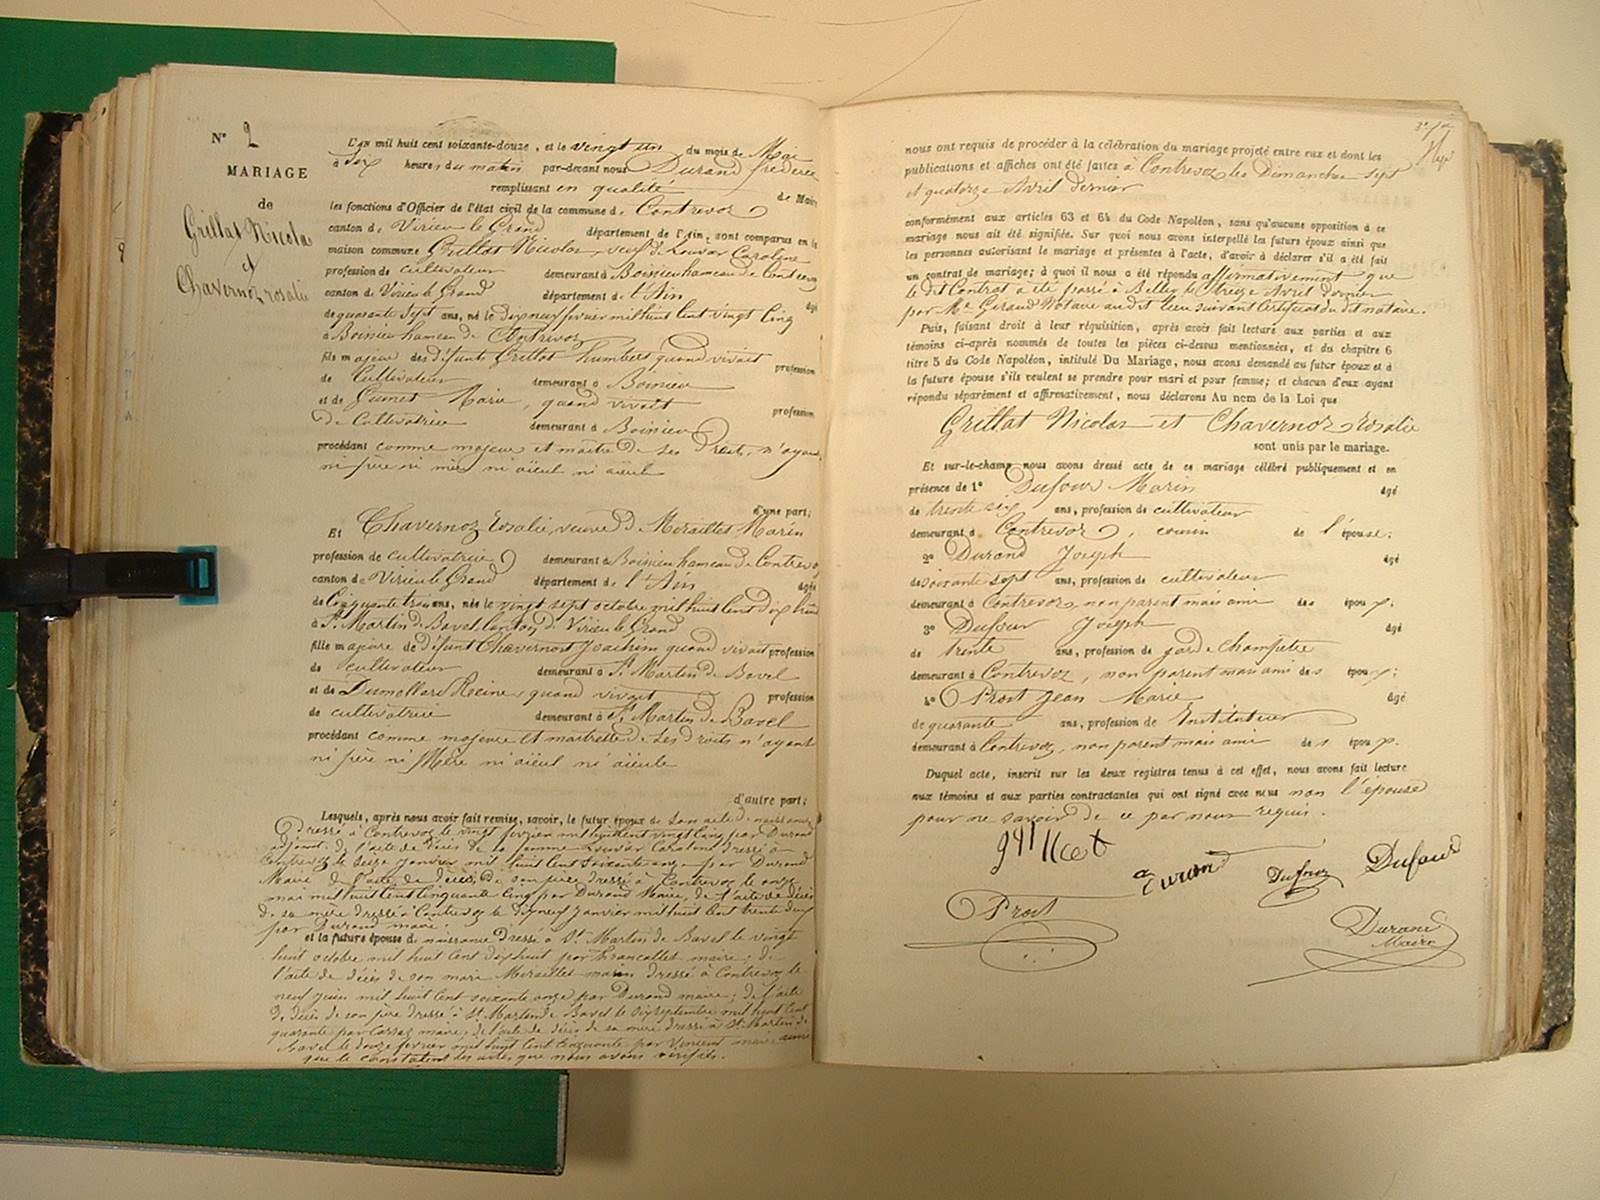 N° 2
MARIAGE
de
Grillat Nicolas
et
Chavernoz rosalie
L'an mil huit cent soixante-douze, et le vingt un du mois de Mai
à six heures du matin par-devant nous Durand frédéric
remplissant en qualité de Maire
les fonctions d'Officier de l'état civil de la commune de Contrevoz
canton de Virieu le Grand département de l'Ain, sont comparus en la
maison commune Grillat Nicolas, veuf de Louvar Caroline
profession de cultivateur demeurant à Boissieu hameau de Contrevoz
canton de Virieu le Grand département de l'Ain âgé
de quarante sept ans, né le dix neuf février mil huit cent vingt cinq
à Boissieu hameau de Contrevoz
fils majeur de défunts Grillat humbert quand vivait profession
de Cultivateur demeurant à Boissieu
et de Marie, quand vivait profession
de Cultivatrice demeurant à Boissieu
procédant comme majeur et maître de ses Droits, n'ayant
ni père ni mère ni aïeul ni aïeule
d'une part;
Et Chavernoz Rosalie, veuve de Meraillet Marin
profession de cultivatrice demeurant à Boissieu hameau de Contrevoz
canton de Virieu le Grand département de l'Ain âgée
de Cinquante trois ans, née le vingt sept octobre mil huit cent dix huit
à St. Martin de Bavel Canton de Virieu le Grand
fille majeure de défunt Chavernoz Joachim quand vivait profession
de cultivateur demeurant à St. Martin de Bavel
et de Dumollard Reine, quand vivait profession
de cultivatrice demeurant à St. Martin de Bavel
procédant comme majeure et maitresse de ses droits n'ayant
ni père ni Mère ni aïeul ni aïeule
d'autre part;
Lesquels, après nous avoir fait remise, savoir, le futur époux de son acte de naissance
Dressé à Contrevoz le vingt février mil huit cent vingt cinq par Durand
adjoint. de l'acte de décès de sa femme Louvar Caroline dressé à
Contrevoz le seize janvier mil huit cent soixante onze par Durand
Maire, de l'acte de décès de son père dressé à Contrevoz le onze
mai mil huit cent cinquante cinq par Durand Maire, de l'acte de décès
de sa mère dressé à Contrevoz le dix neuf janvier mil huit cent trente deux
par Durand maire.
et la future épouse de naissance Dressé à St. Martin de Bavel le vingt
huit octobre mil huit cent dix huit par Francallet maire; de
l'acte de décès de son mari Meraillet marin dressé à Contrevoz le
neuf juin mil huit cent soixante onze par Durand maire; de l'acte
de décès de son père dressé à St. Martin de Bavel le six septembre mil huit cent
quarante par Carraz maire; de l'acte de décès de sa mère dressé à St. Martin de
Bavel le douze février mil huit cent cinquante par Vincent maire ainsi
que le constatent les actes que nous avons vérifiés.
nous ont requis de procéder à la célébration du mariage projeté entre eux et dont les
publications et affiches ont été faites à Contrevoz les Dimanches sept
et quatorze Avril dernier
conformément aux articles 63 et 64 du Code Napoléon, sans qu'aucune opposition à ce
mariage nous ait été signifiée. Sur quoi nous avons interpellé les futurs époux ainsi que
les personnes autorisant le mariage et présentes à l'acte, d'avoir à déclarer s'il a été fait
un contrat de mariage; à quoi il nous a été répondu affirmativement que
le dit Contrat a été passé à Belley le treize Avril dernier
par Me Geraud Notaire au dit lieu suivant Certificat du dit notaire.
Puis, faisant droit à leur réquisition, après avoir fait lecture aux parties et aux
témoins ci-après nommés de toutes les pièces ci-dessus mentionnées, et du chapitre 6
titre 5 du Code Napoléon, intitulé Du Mariage, nous avons demandé au futur époux et à
la future épouse s'ils veulent se prendre pour mari et pour femme; et chacun d'eux ayant
répondu séparément et affirmativement, nous déclarons Au nom de la Loi que
Grillat Nicolas et Chavernoz rosalie
sont unis par le mariage.
Et sur-le-champ nous avons dressé acte de ce mariage célébré publiquement et en
présence de 1° Dufour Marin âgé
de trente six ans, profession de cultivateur
demeurant à Contrevoz, cousin de l'épouse;
2° Durand Joseph âgé
de soixante sept ans, profession de cultivateur
demeurant à Contrevoz, non parent mais ami des époux;
3° Dufour Joseph âgé
de trente ans, profession de garde Champêtre
demeurant à Contrevoz, non parent mais ami des époux;
4° Prost Jean Marie âgé
de quarante ans, profession de Instituteur
demeurant à Contrevoz, non parent mais ami des époux.
Duquel acte, inscrit sur les deux registres tenus à cet effet, nous avons fait lecture
aux témoins et aux parties contractantes qui ont signé avec nous non l'épouse
pour ne savoir de ce par nous requis.
grillat
Durand
Dufour
Dufour
Prost
Durand
Maire